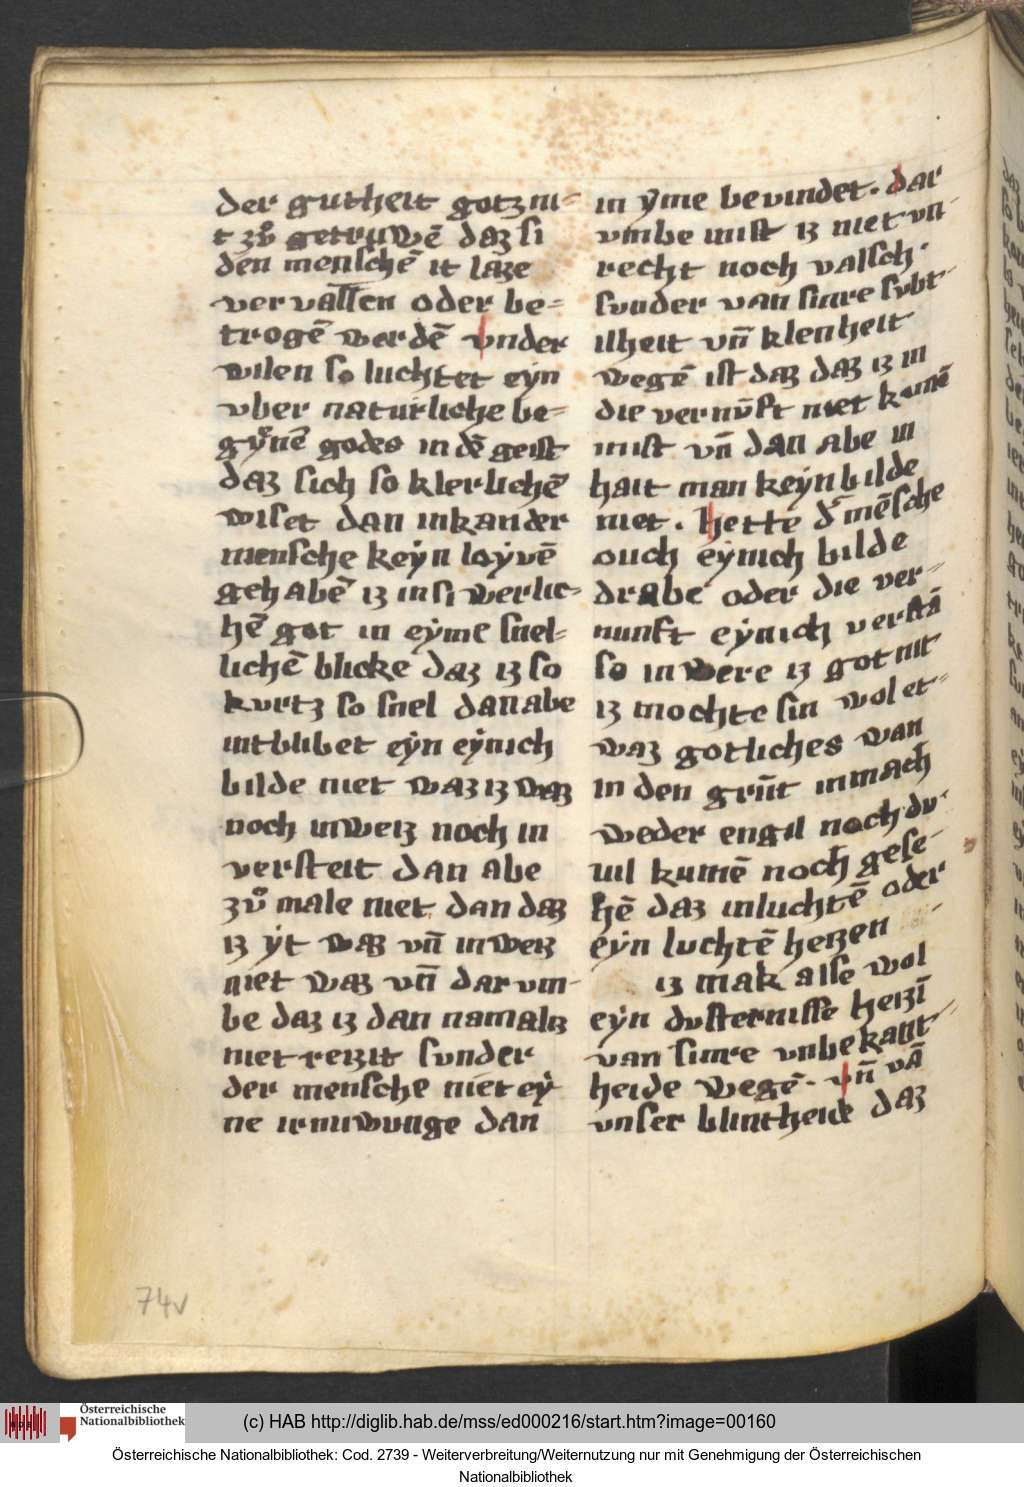 der gutheit gotz ni-
t zuͦ getruwē daz si
den menschē it laze
vervallen oder be-
trogē werdē vnder
wilen so luchtet eyn
vber naturliche be-
gynē godes in dē geist
daz sich so klerlichē
wiset dan inkander
mensche keyn loyvē
gehabē iz insi werlic-
hē got in eyme snel-
lichē blicke daz iz so
kurtz so snel dan abe
intblibet eyn eynich
bilde niet waz iz waz
noch inweiz noch in
versteit dan abe
zuͦ male niet dan daz
iz yt waz vn̄ inweiz
niet waz vn̄ dar vm-
be daz iz dan namaliz
niet reizit sunder
der mensche niet ey
ne irnuwunge dan
in yme bevindet. dar
vmbe inist iz niet vn-
recht noch valsch.
sunder van sinre subt-
ilheit vn̄ klenheit
wegē ist daz daz iz in
die vernūft niet kumē
inist vn̄ dan abe in
hait man keyn bilde
niet. hette d' mēsche
ouch eynich bilde
dr abe oder die ver-
nunft eynich verstā
so inwere iz got nit
iz mochte sin wol et-
waz gotliches wan
in den grūt inmach
weder engil noch du-
uil kumē noch gese-
hē daz inluchtē oder
eyn luchtē heizen -
iz mak alse wol
eyn dusternisse heizī
van sinre vnbekant-
heide wegē. vn̄ vā
vnser blintheide daz
74v
Österreichische
Nationalbibliothek
(c) HAB http://diglib.hab.de/mss/ed000216/start.htm?image=00160
Österreichische Nationalbibliothek: Cod. 2739 - Weiterverbreitung/Weiternutzung nur mit Genehmigung der Österreichischen
Nationalbibliothek